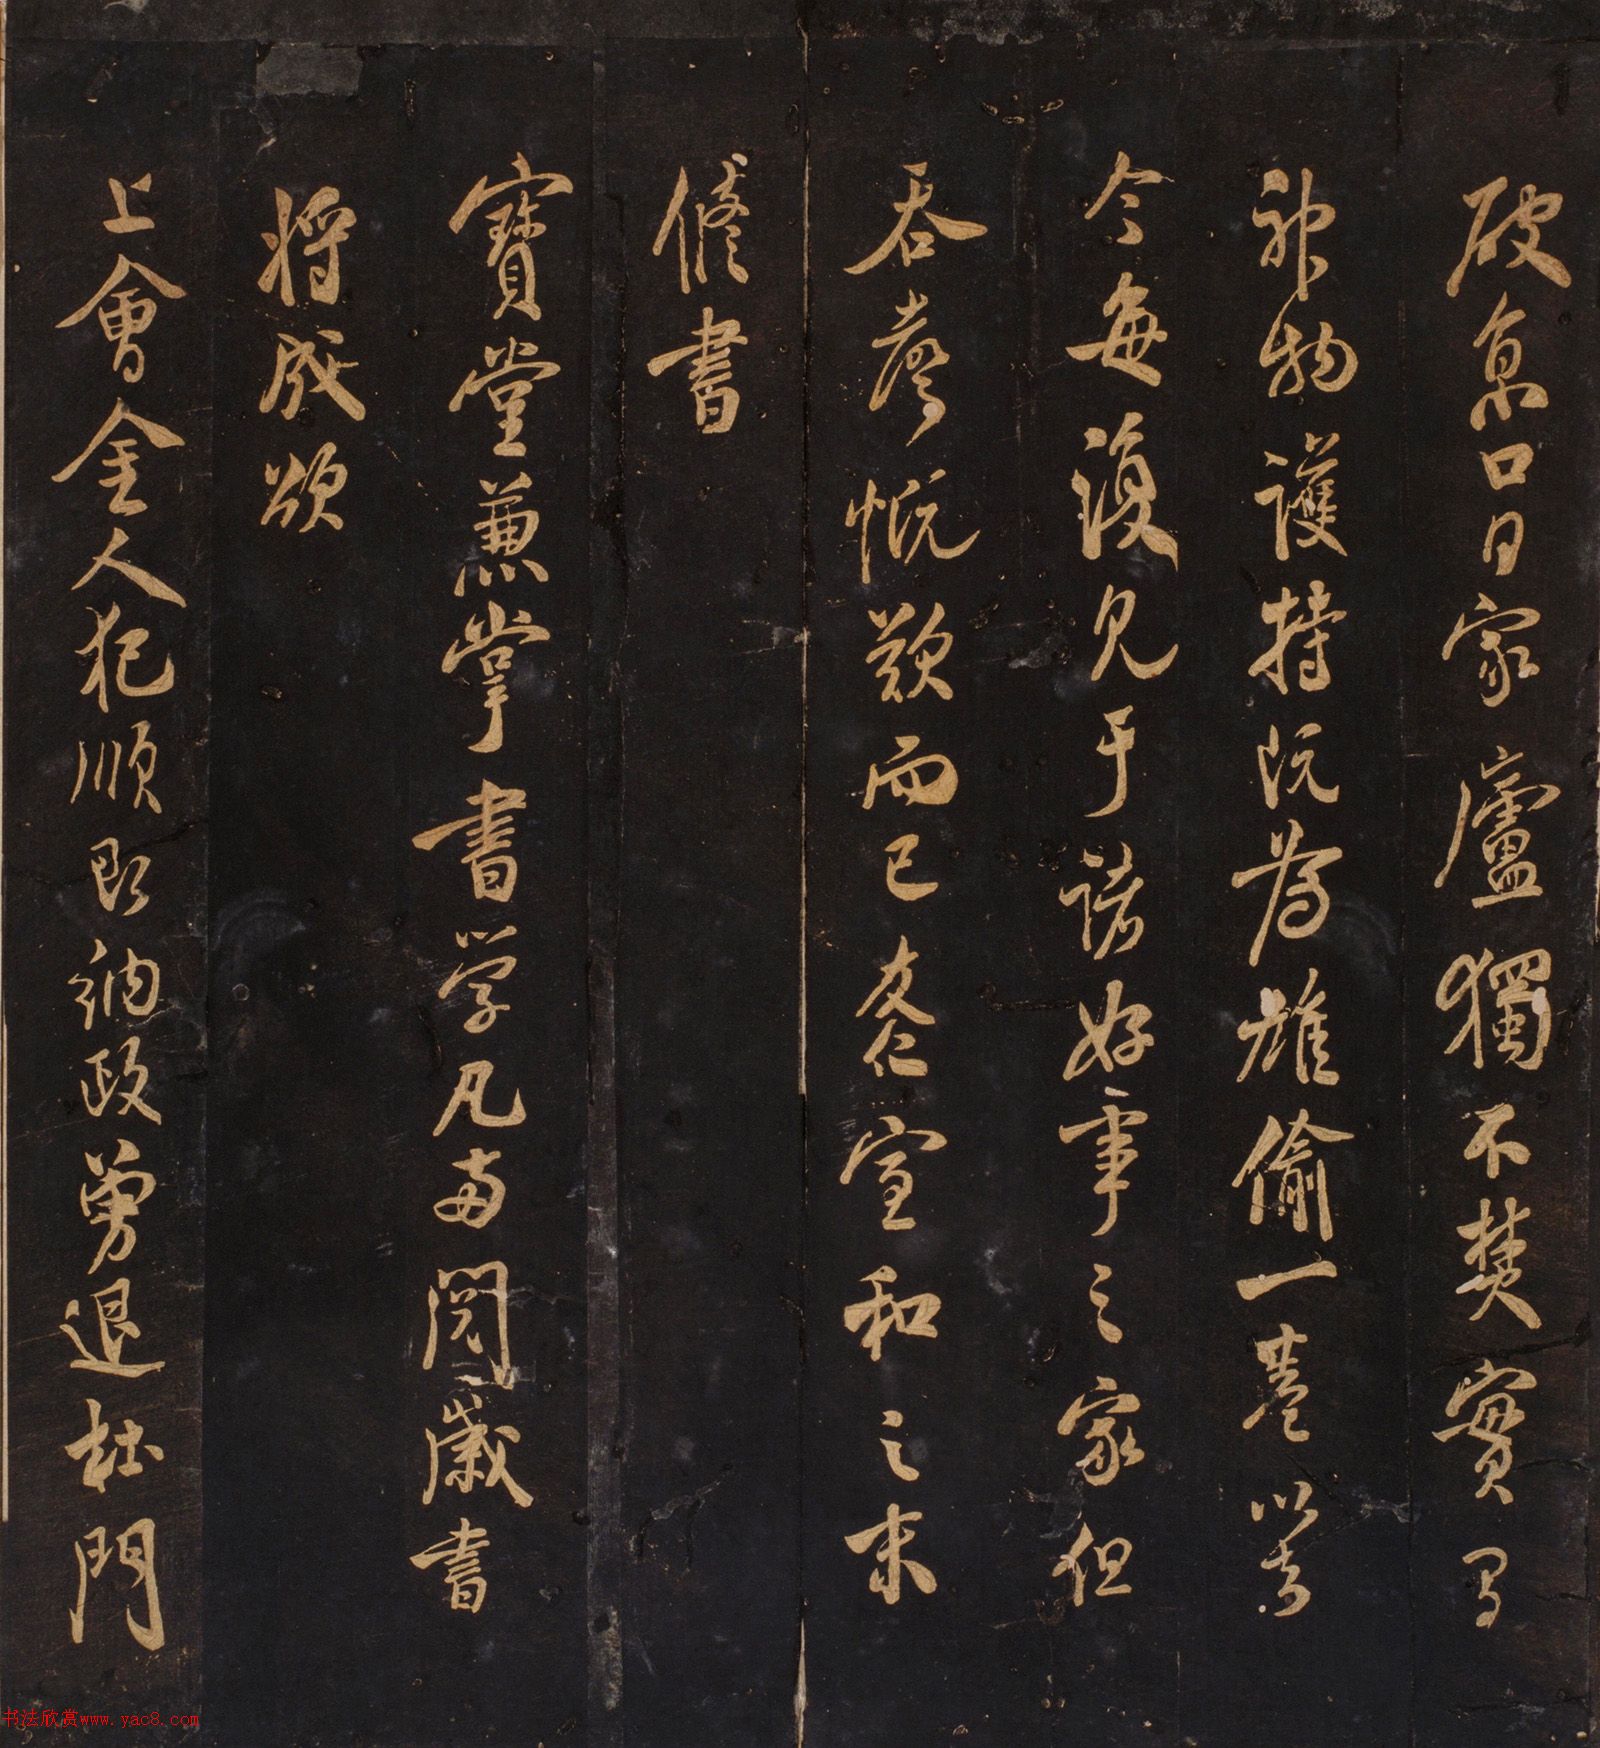 破京口日家廬獨不焚實有
神物護持既為雄偷一卷以去
今每復見于諸好事之家但
吞聲慨歎而已友仁宣和之末
修書
寶堂兼掌書學凡兩閱歲書
將成欲
上會金人犯順即納政勇退杜門
书法欣赏www.yac8.com